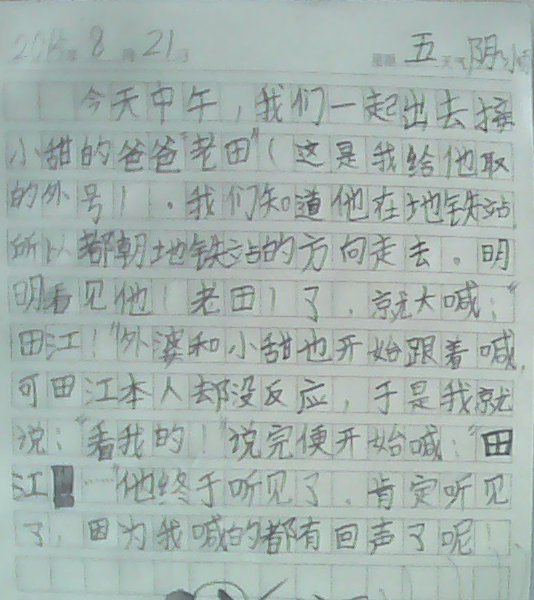 2015年8月21日 星期五 天气阴小雨
今天中午，我们一起出去接
小甜的爸爸“老田”（这是我给他取
的外号）。我们知道他在地铁站，
所以都朝地铁站的方向走去。明
明看见他（老田）了，就大喊：“
田江！”外婆和小甜也开始跟着喊，
可田江本人却没反应，于是我就
说：“看我的！”说完便开始喊：“田
江……”他终于听见了，肯定听见
了，因为我喊的都有回声了呢！